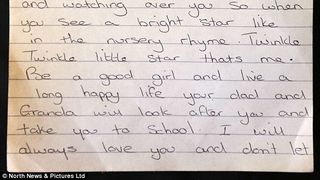 and watching over you so when
you see a bright star like
in the nursery rhyme. Twinkle
Twinkle little star thats me.
Be a good girl and live a
long happy life your dad and
Granda will look after you and
take you to School. I will
always love you and don't let
© North News & Pictures Ltd